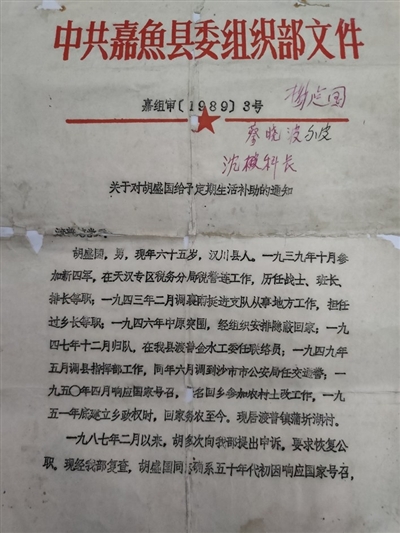 中共嘉鱼县委组织部文件
嘉组审〔1989〕3号
关于对胡盛国给予定期生活补助的通知
胡盛国，男，现年六十五岁，汉川县人。一九三九年十月参
加新四军，在天汉专区税务分局税警连工作，历任战士、班长、
排长等职；一九四三年二月调襄南挺进支队从事地方工作，担任
过乡长等职；一九四六年中原突围，经组织安排隐蔽回家；一九
四七年十二月归队，在我县渡普金水工委任联络员；一九四九年
五月调县指挥部工作，同年六月调到沙市市公安局任交通警；一
九五〇年四月响应国家号召，名回乡参加农村土改工作，一九
五一年底建立乡政权时，回家务农至今。现居渡普镇蒲圻湖村。
一九八七年二月以来，胡多次向我部提出申诉，要求恢复公
职。现经我部复查，胡盛国同志确系五十年代初因响应国家号召，